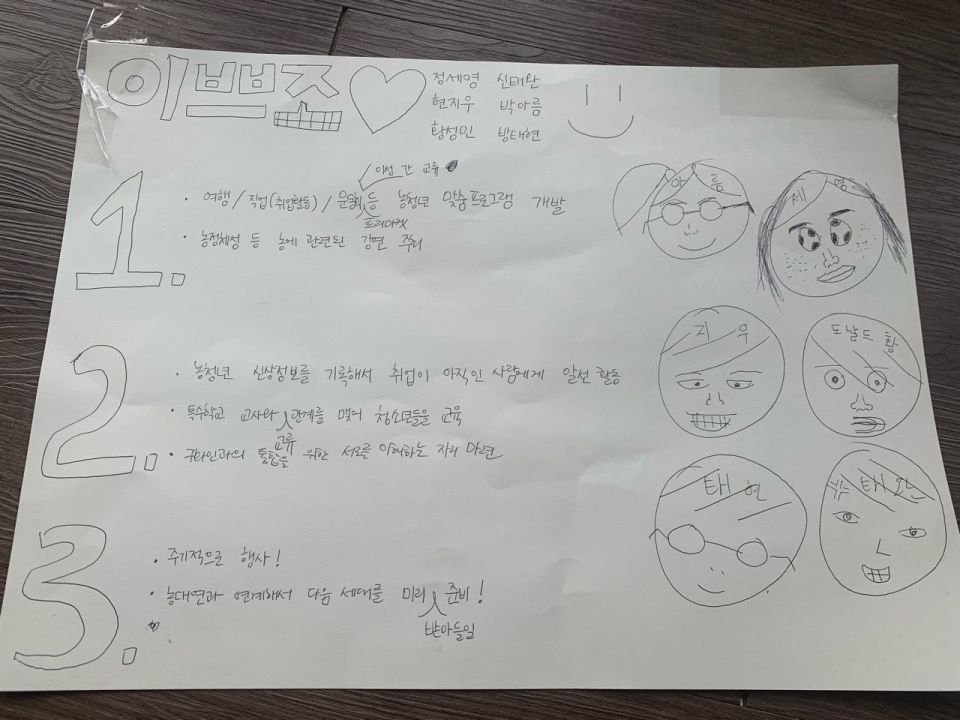 이쁘조
정세영 신태완
현지우 박아름
황성민 방태현
1.
이성 간 교류
· 여행/직업(취업활동)/운동회 등 농청년 맞춤프로그램 개발
프리마켓
· 농정체성 등 농에 관련된 강연 주최
2.
· 농청년 신상정보를 기록해서 취업이 아직인 사람에게 알선 활동
· 특수학교 교사와 관계를 맺어 청소년들을 교육
교류
· 구화인과의 통합을 위한 서로를 이해하는 자리 마련
3.
· 주기적으로 행사!
· 농대연과 연계해서 다음 세대를 미리 준비!
받아들일
아름
세영
지우
도날드 황
태현
태완